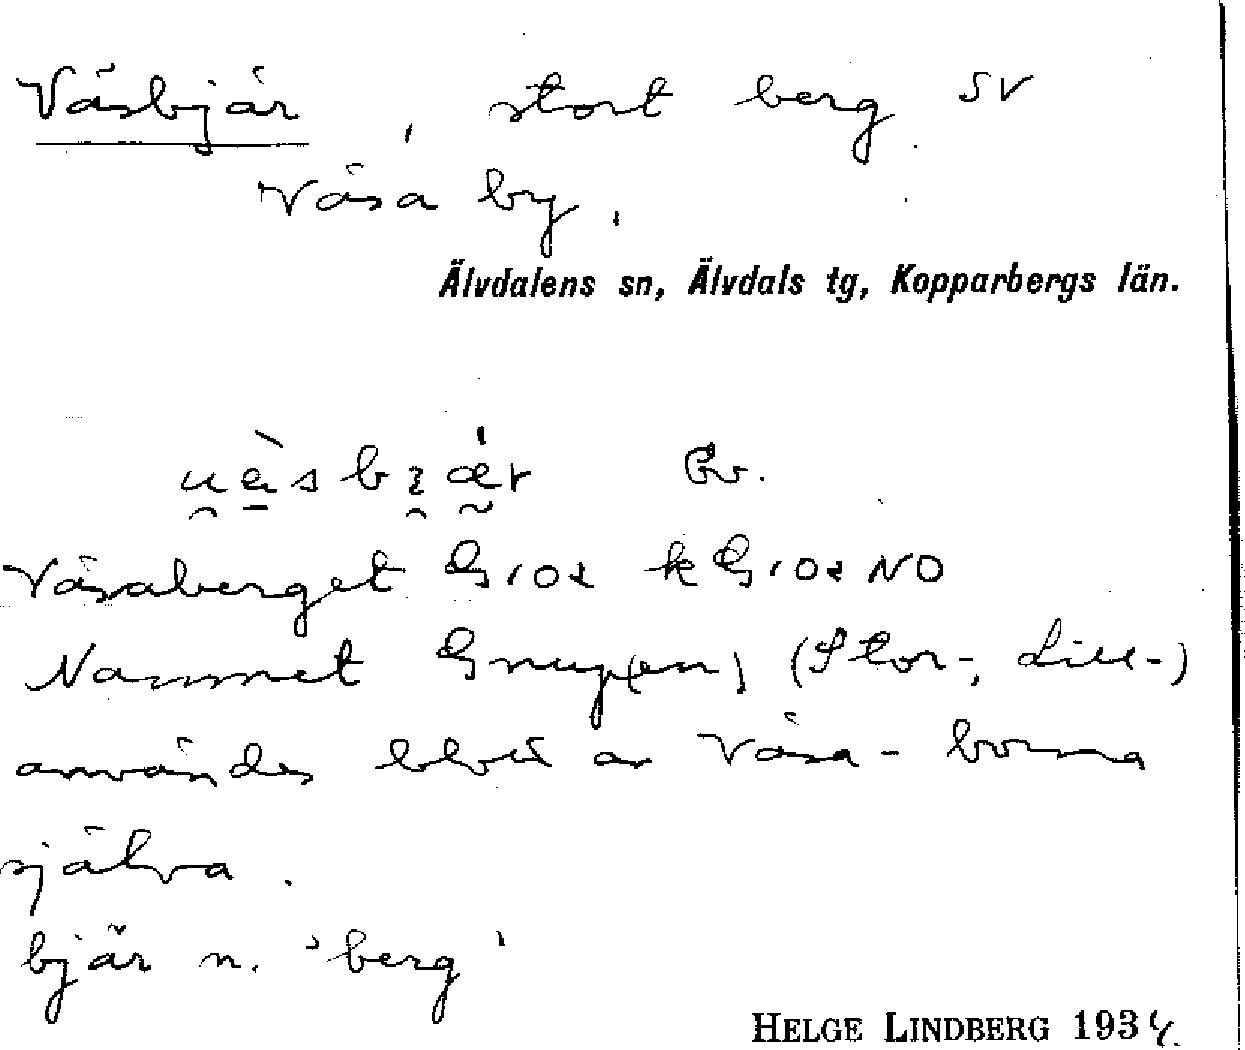 Väsbjär, stort berg SV
Väsa by.
Älvdalens sn, Älvdals tg, Kopparbergs län.
Väsaberget G102 k G102 NO
Namnet Gnup(en) (Stor-, Lill-)
användes blott av Väsa-borna
själva.
bjär n. 'berg'
HELGE LINDBERG 1934